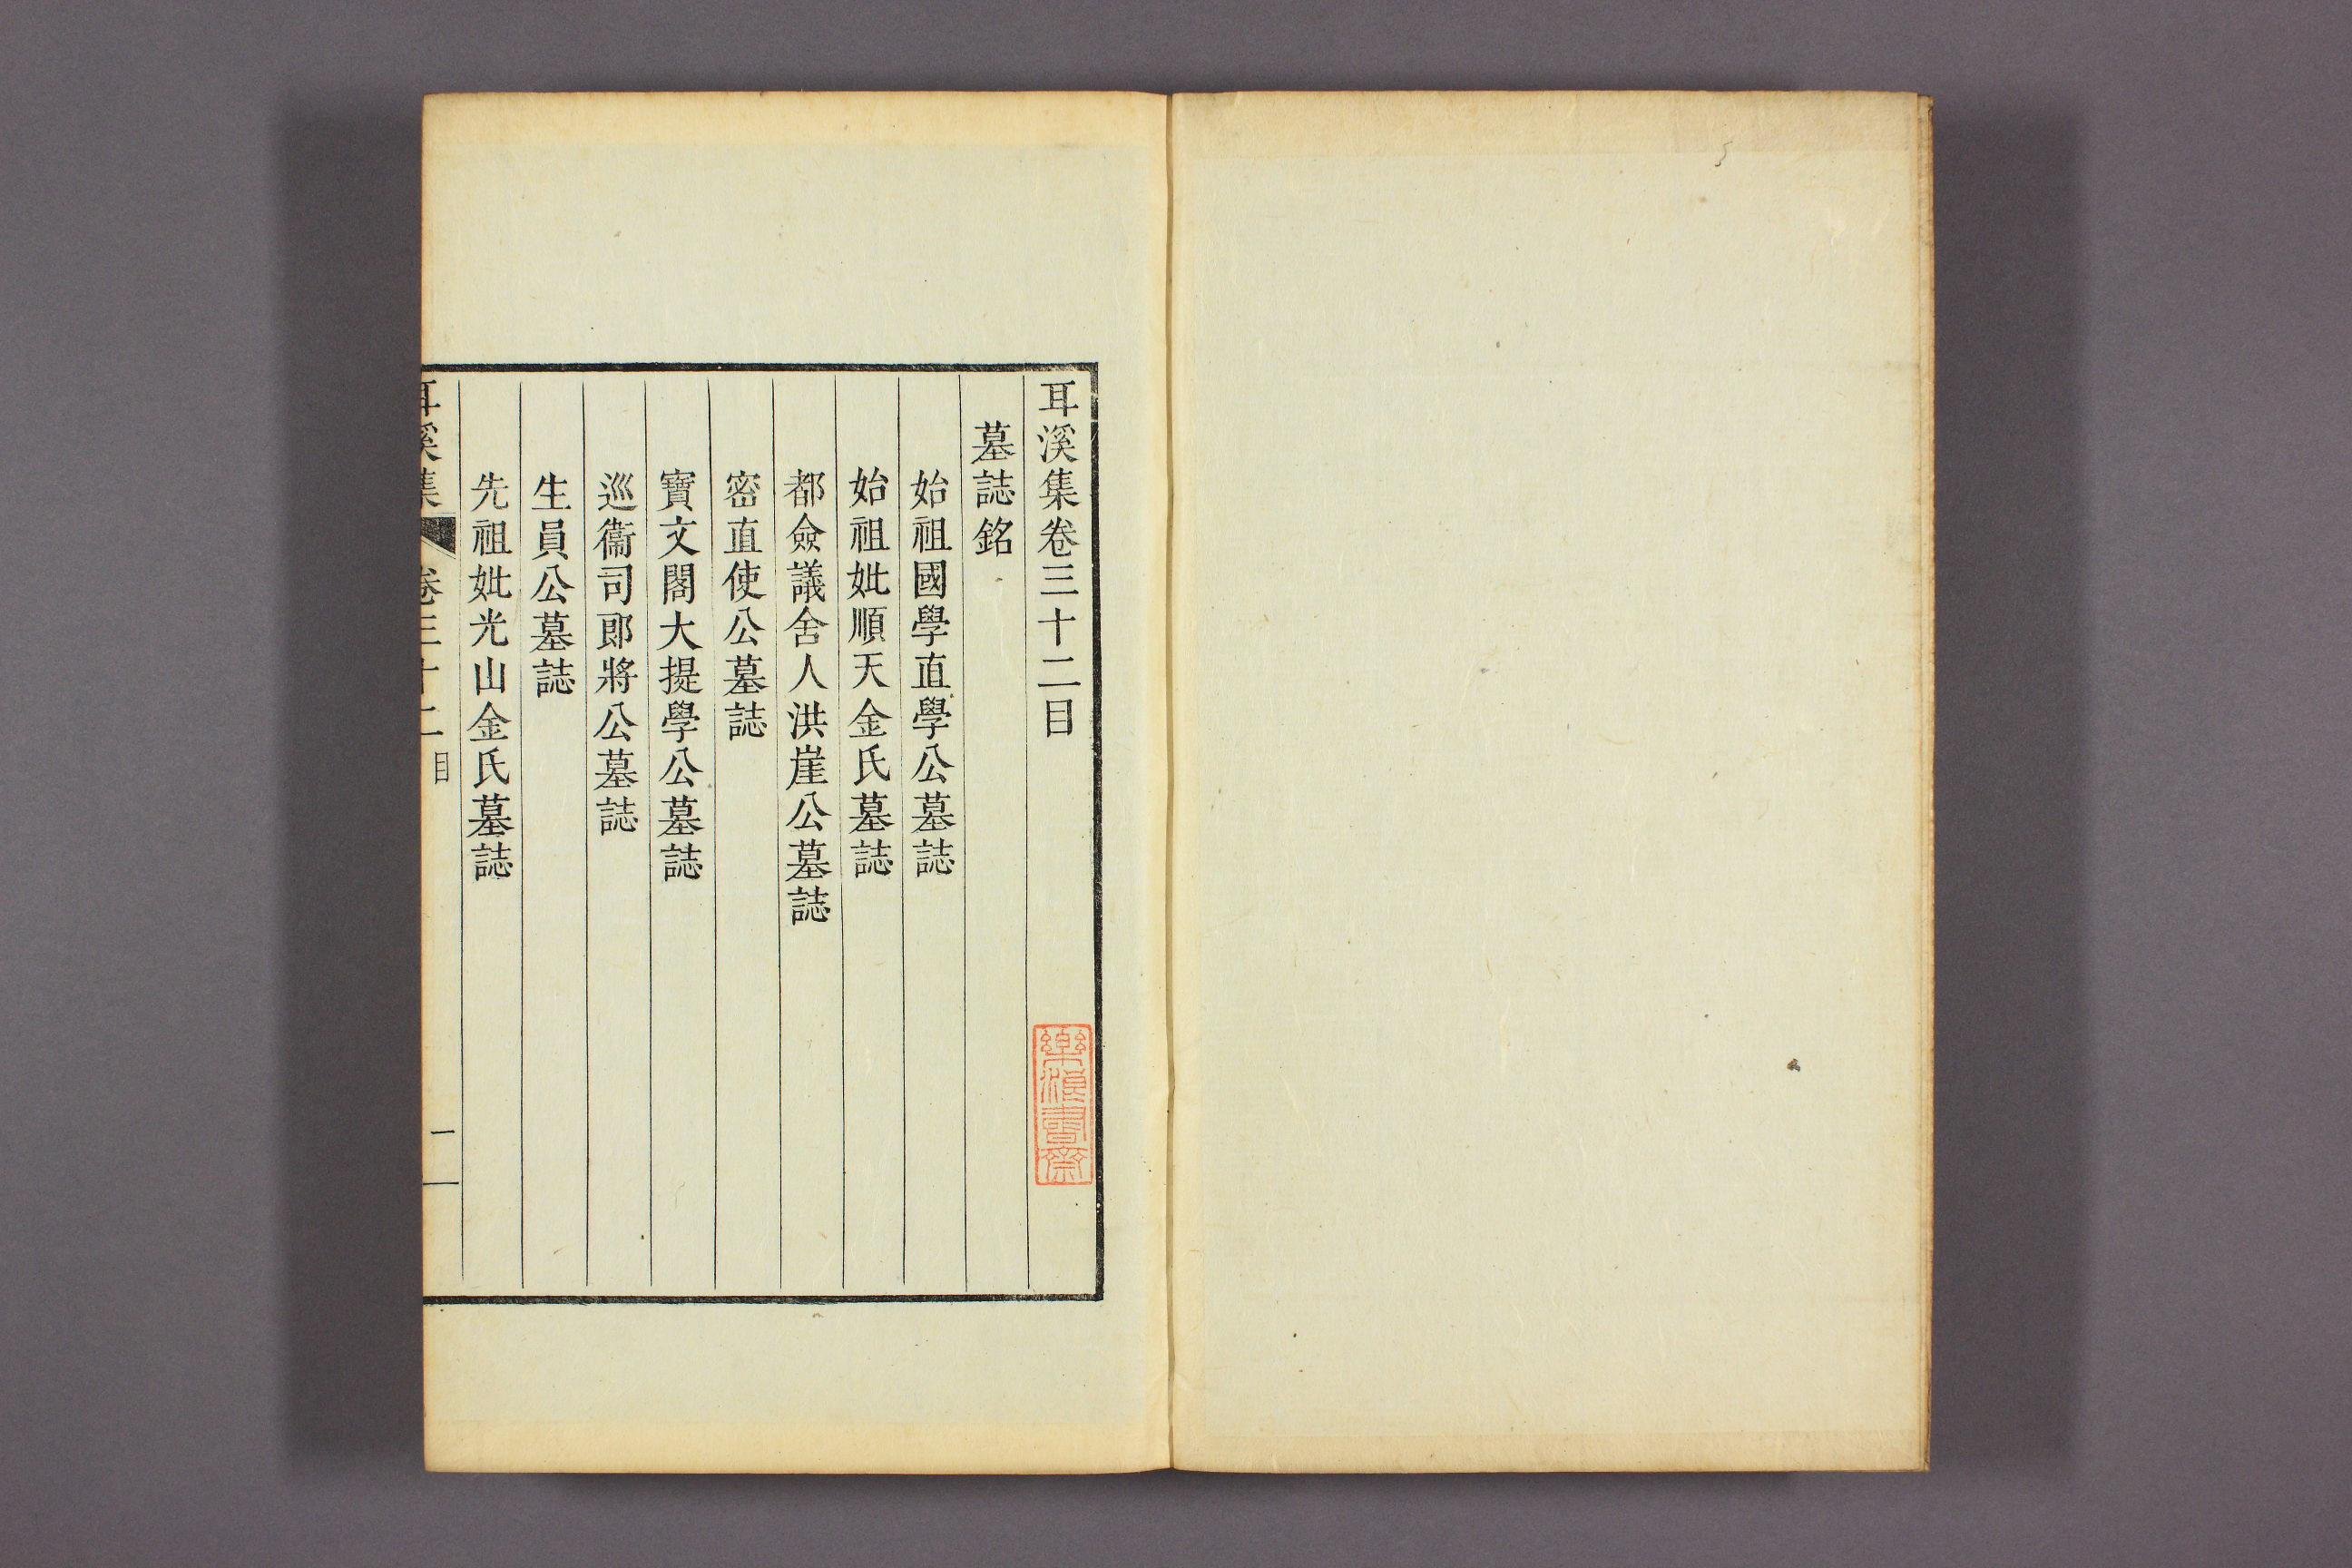 耳溪集卷三十二目
墓誌銘
始祖國學直學公墓誌
始祖妣順天金氏墓誌
都僉議舍人洪崖公墓誌
密直使公墓誌
寶文閣大提學公墓誌
巡衞司郎將公墓誌
生員公墓誌
先祖妣光山金氏墓誌
耳溪集 卷三十二 目 一
樂浪書齋